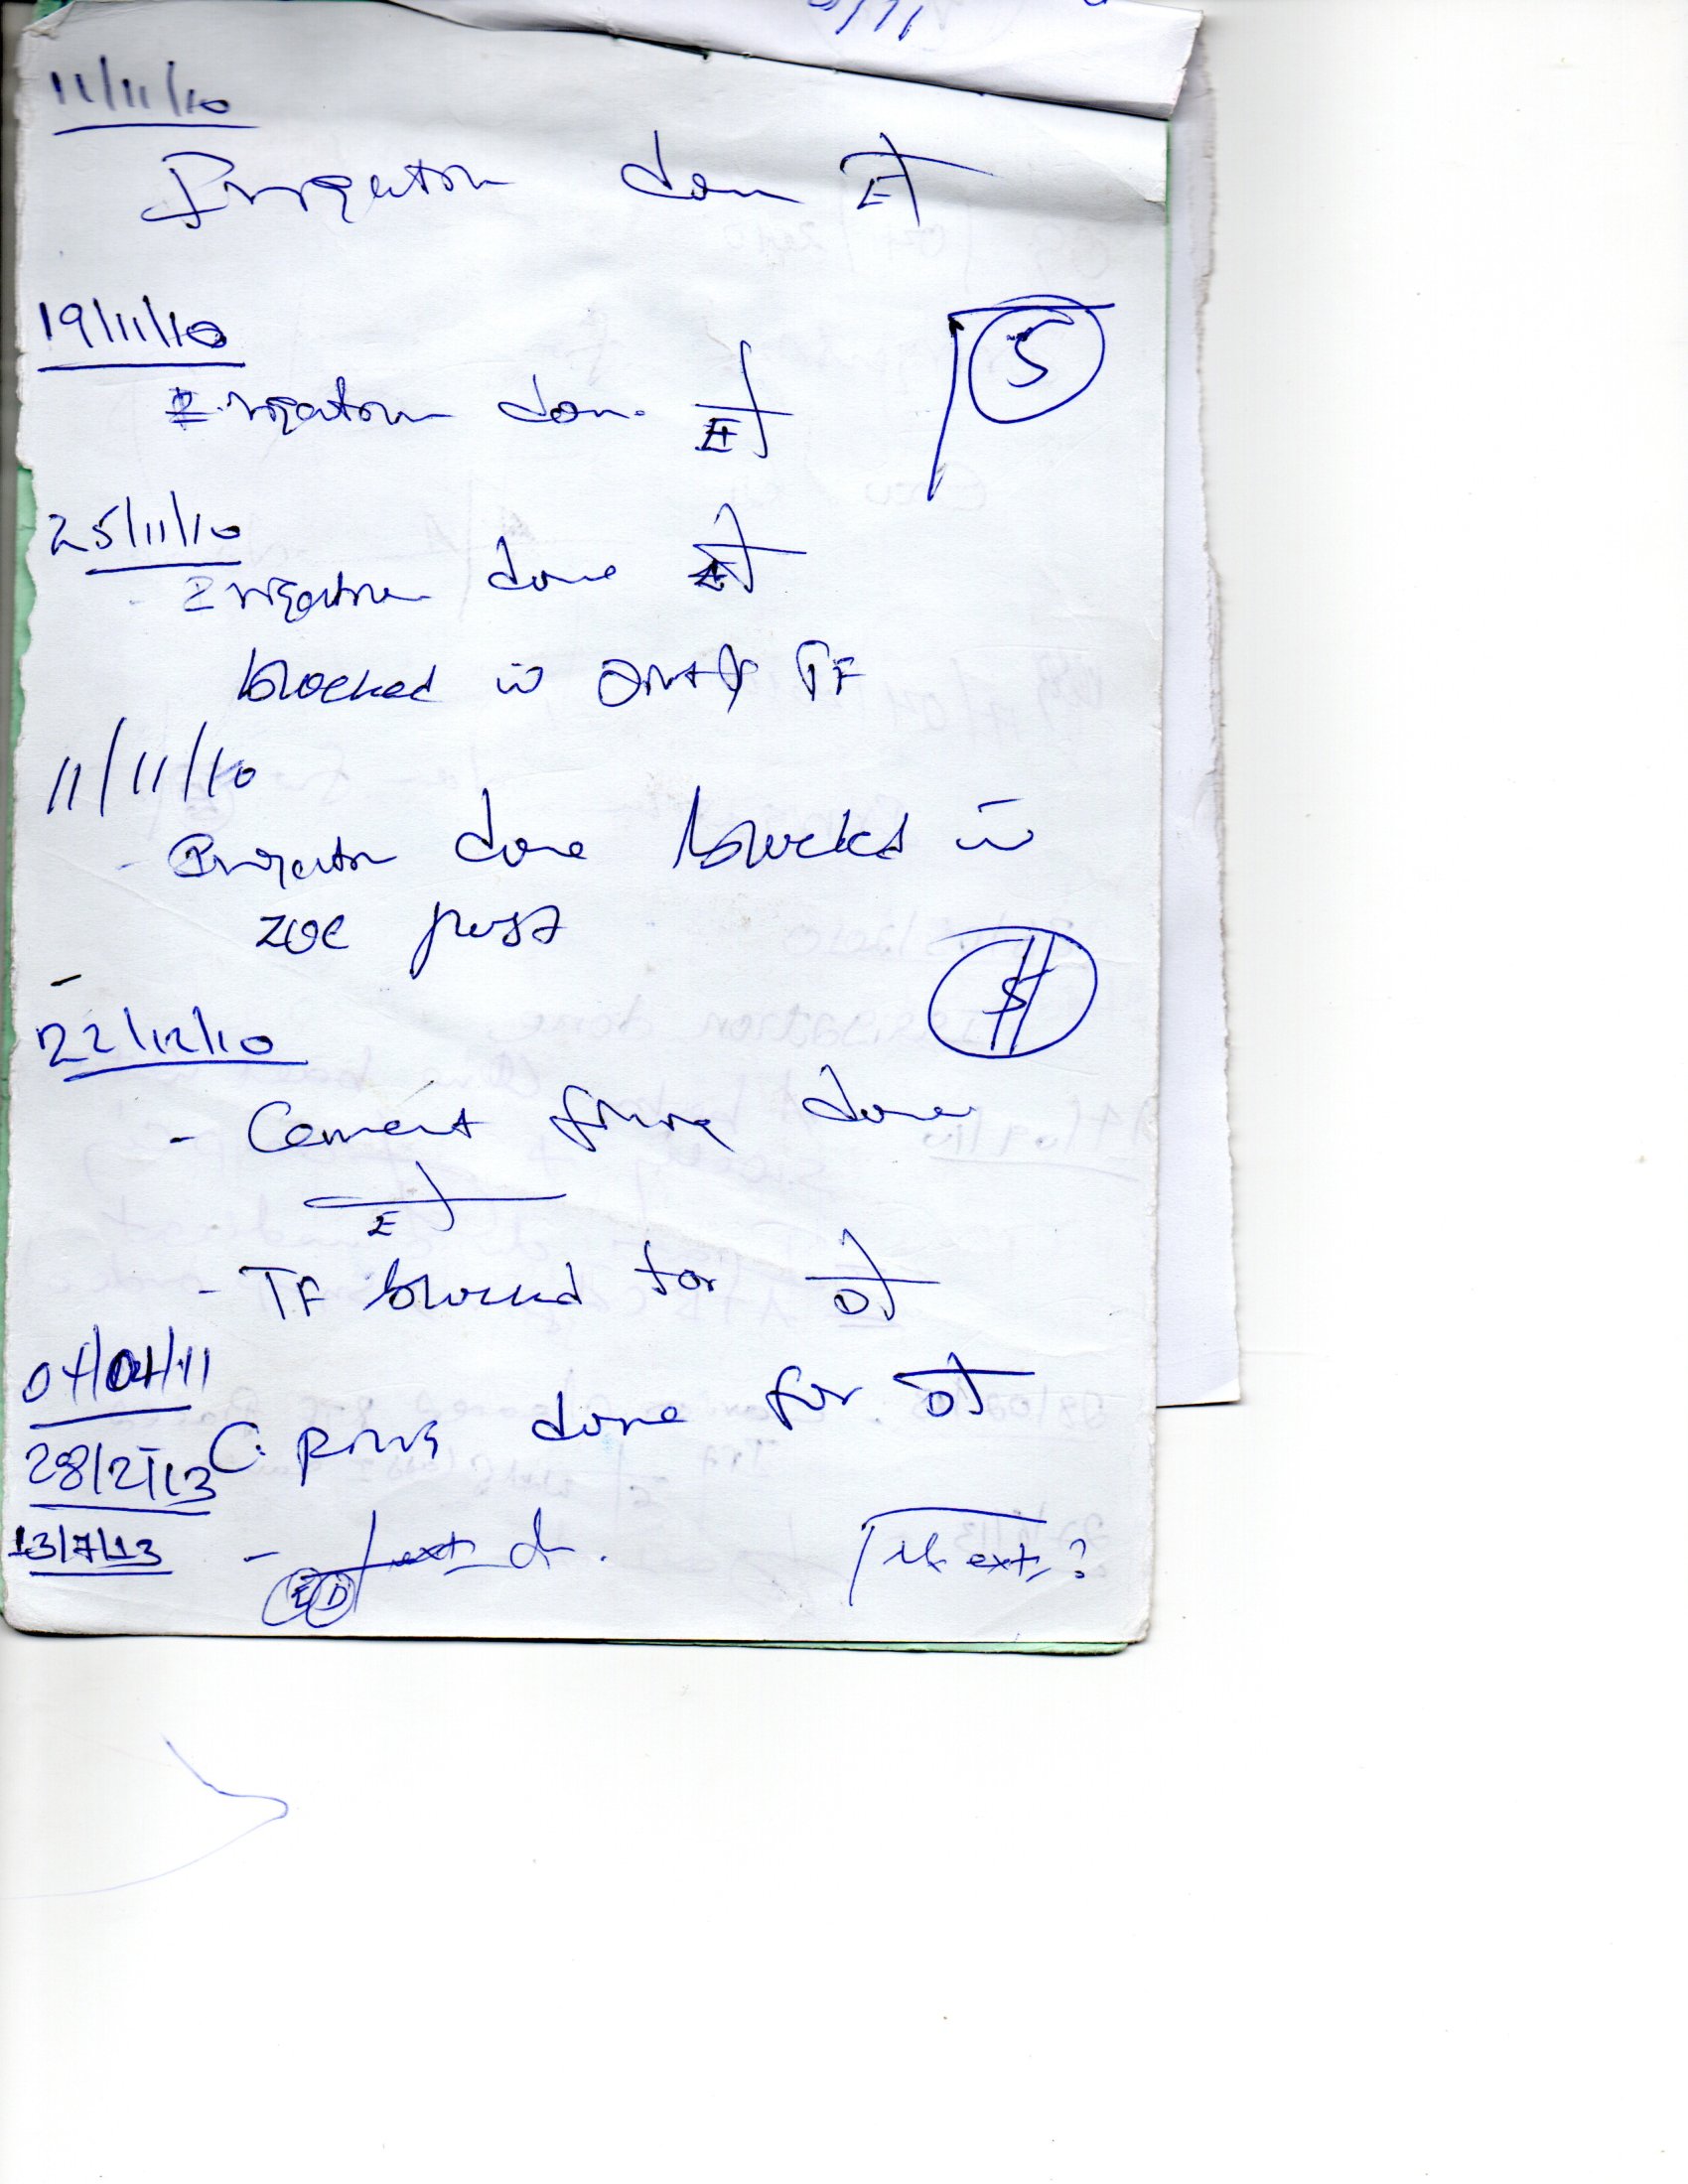 11/11/10
Irrigation don E
19/11/10
5
Irrigation don. E
25/11/10
- Irrigation done
blocked w TF
11/11/10
- Irrigation done blocked w
ZOE past
22/12/10
- Cement filling done
E
- TF blocked for D
07/04/11
C. filling done for D
28/2/13
13/7/13 - E D ext d. ext?